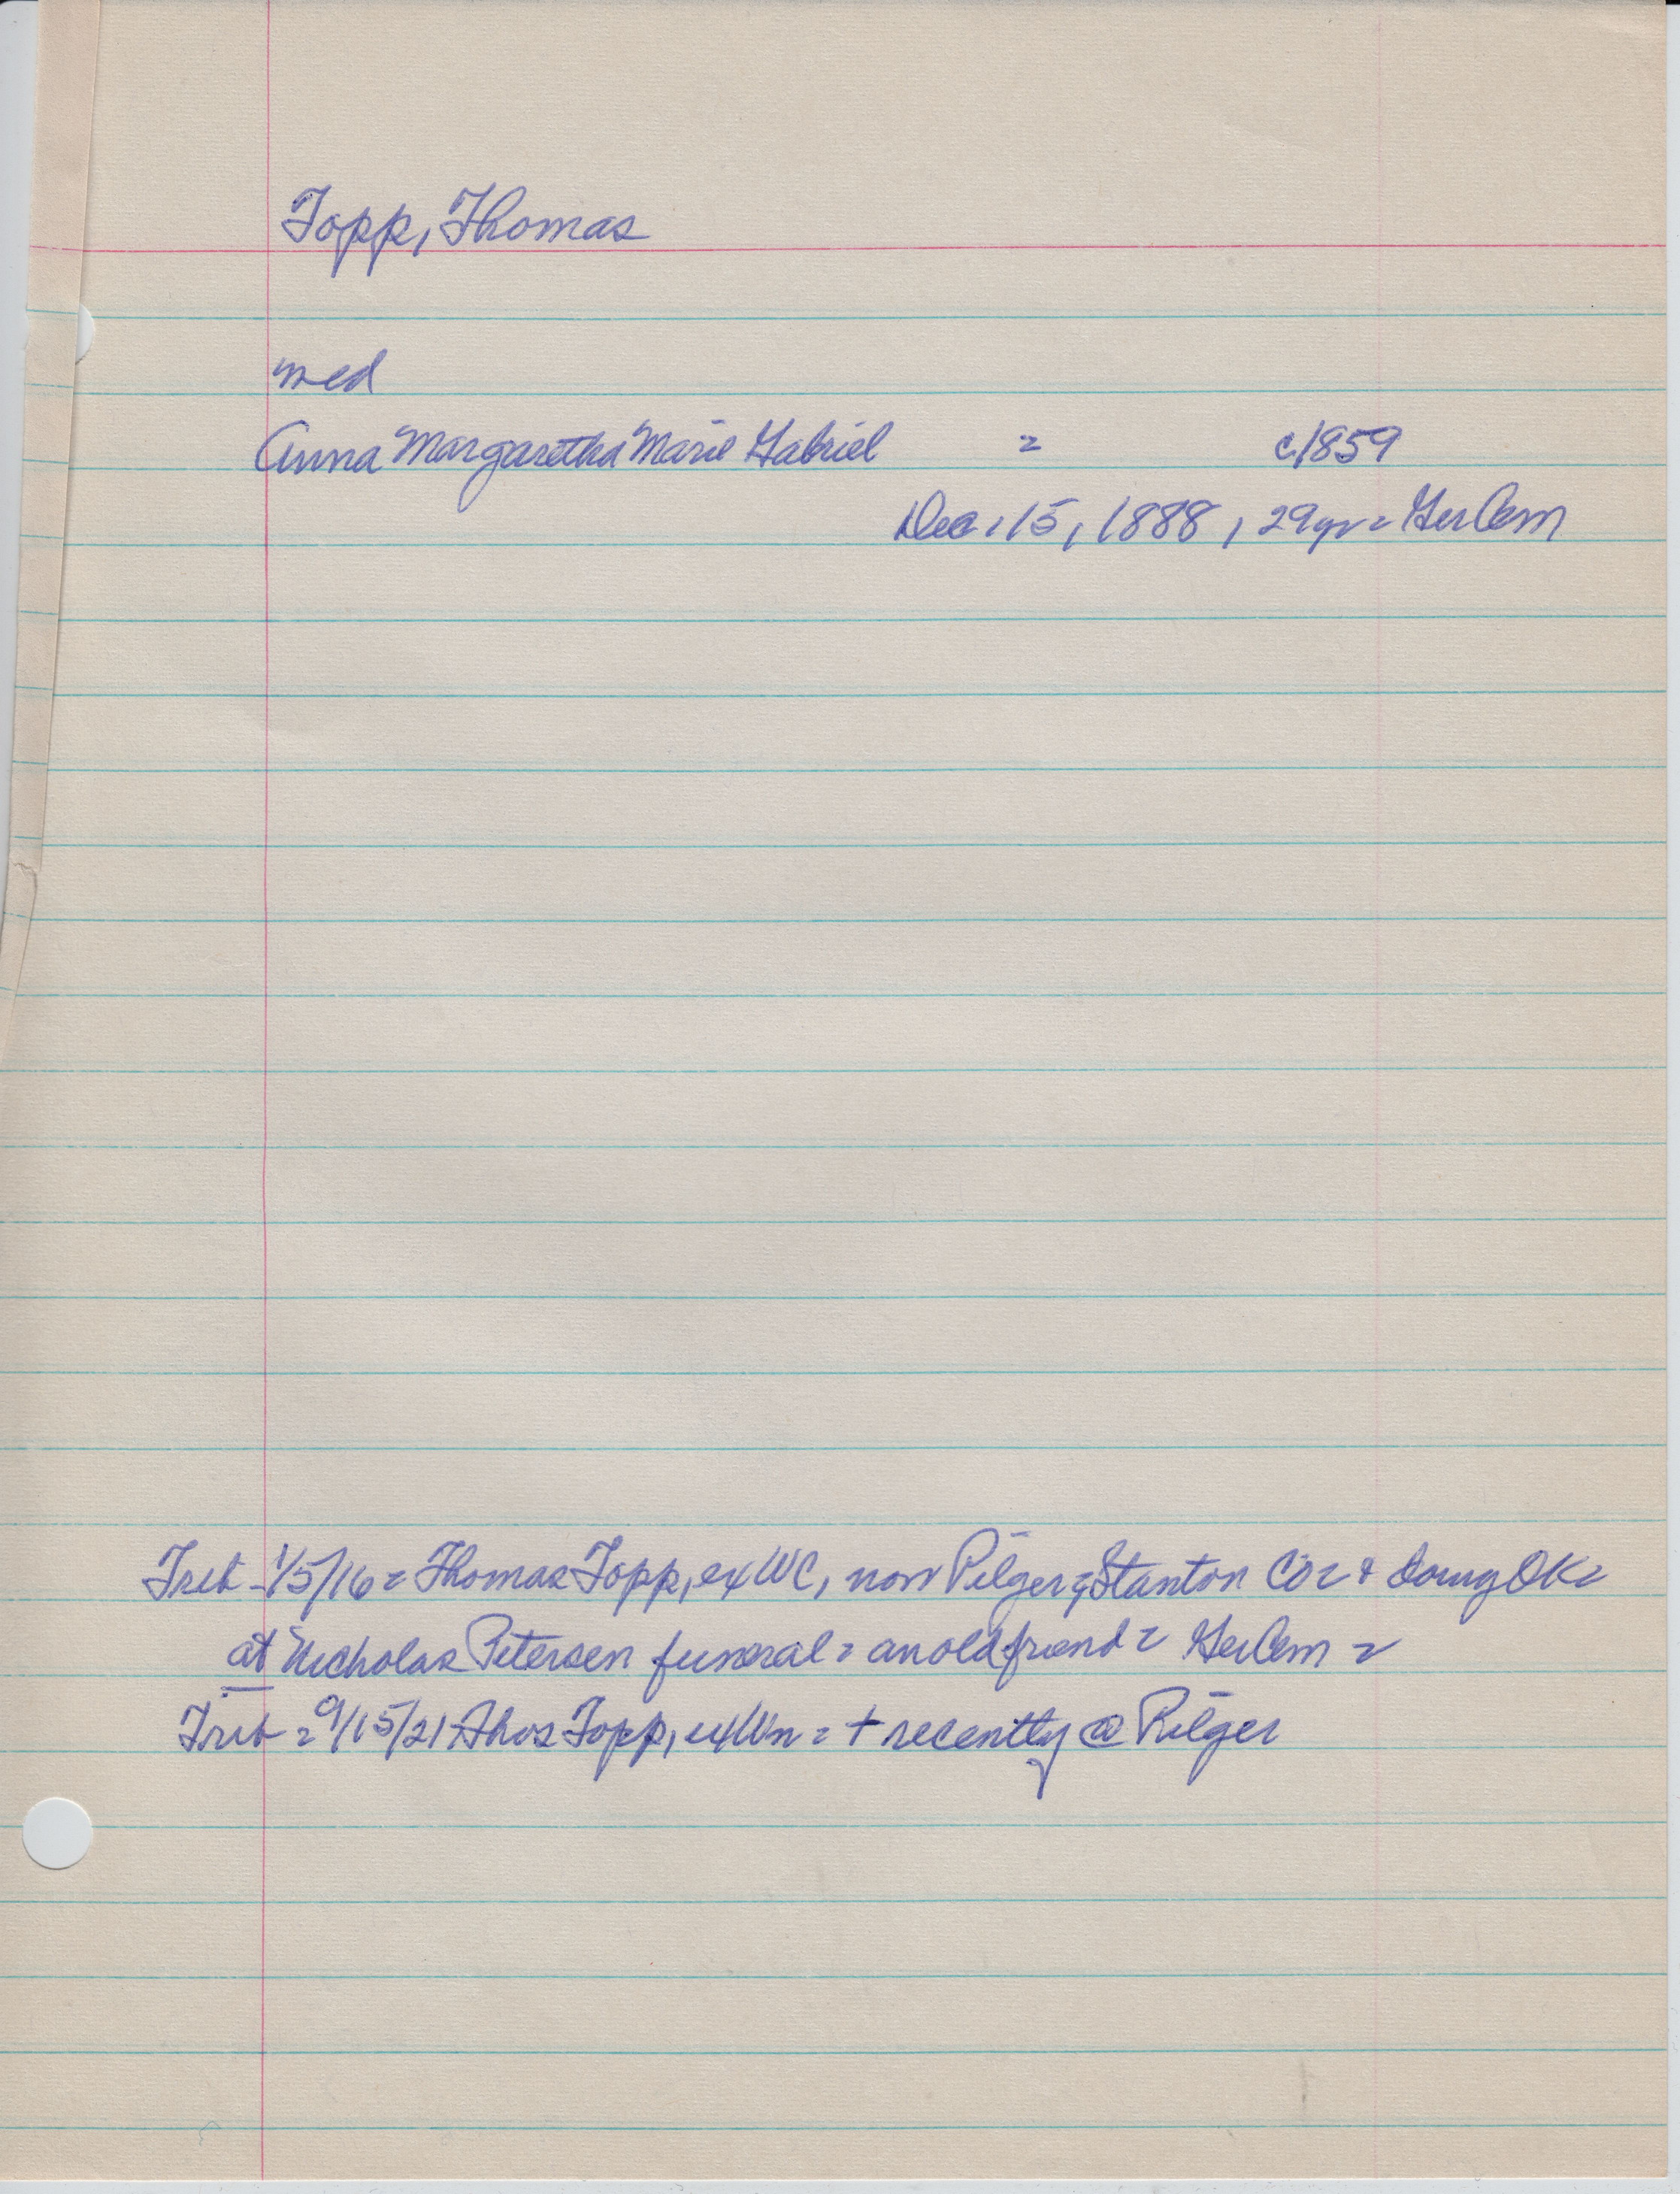 Topp, Thomas
med
Anna Margaretha Marie Gabriel = c1859
Dec. 15, 1888, 29yr = Ger Cem
Trib - 1/5/16 = Thomas Topp, ex WC, now Pilger, Stanton Co = & doing OK =
at Nicholas Petersen funeral = an old friend = Ger Cem =
Trib = 9/15/21 Thos Topp, ex Wn = + recently @ Pilger